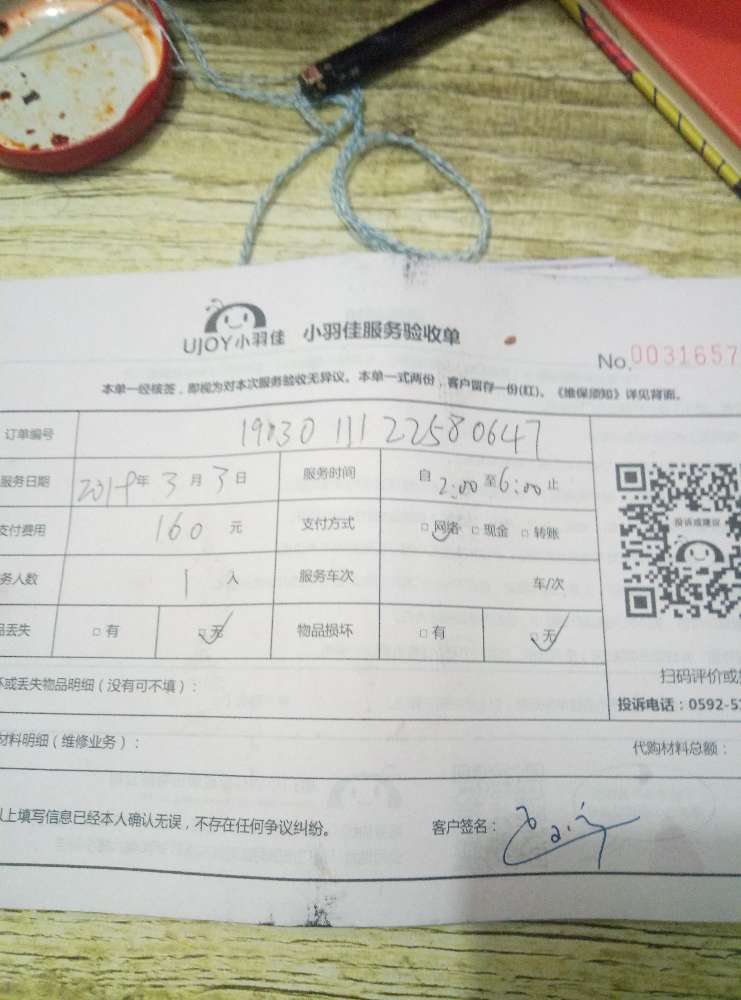 UJOY小羽佳 小羽佳服务验收单
No. 0031657
本单一经核签，即视为对本次服务验收无异议。本单一式两份，客户留存一份(红)。《维保须知》详见背面。
订单编号 190301112258 0647
服务日期 2019年 3 月 3 日 服务时间 自 2:00 至 6:00 止
支付费用 160 元 支付方式 □ 网络 □ 现金 □ 转账
务人数 1 人 服务车次 车/次
投诉或建议
品丢失 □ 有 □ 无 物品损坏 □ 有 □ 无
扫码评价或
坏或丢失物品明细（没有可不填）：
投诉电话：0592-5
材料明细（维修业务）： 代购材料总额：
以上填写信息已经本人确认无误，不存在任何争议纠纷。 客户签名：